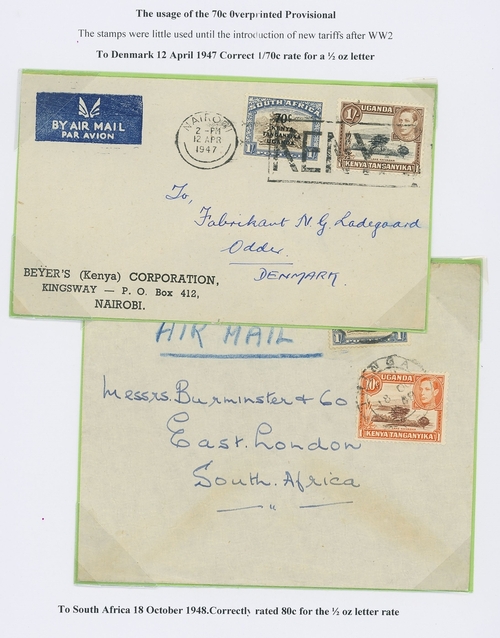 The usage of the 70c 0verprinted Provisional
The stamps were little used until the introduction of new tariffs after WW2
To Denmark 12 April 1947 Correct 1/70c rate for a ½ oz letter
BY AIR MAIL
PAR AVION
NAIROBI
2 - PM
12 APR
1947
SOUTH AFRICA
70c
KENYA
TANGANYIKA
UGANDA
1/-
UGANDA
KENYA TANGANYIKA
KENYA
To,
Fabrikant N.G. Ladegaard
Odder.
DENMARK.
BEYER'S (Kenya) CORPORATION,
KINGSWAY — P. O. Box 412,
NAIROBI.
AIR MAIL
Messrs. Burminster & Co
East. London
South. Africa
10c
UGANDA
KENYA TANGANYIKA
To South Africa 18 October 1948.Correctly rated 80c for the ½ oz letter rate